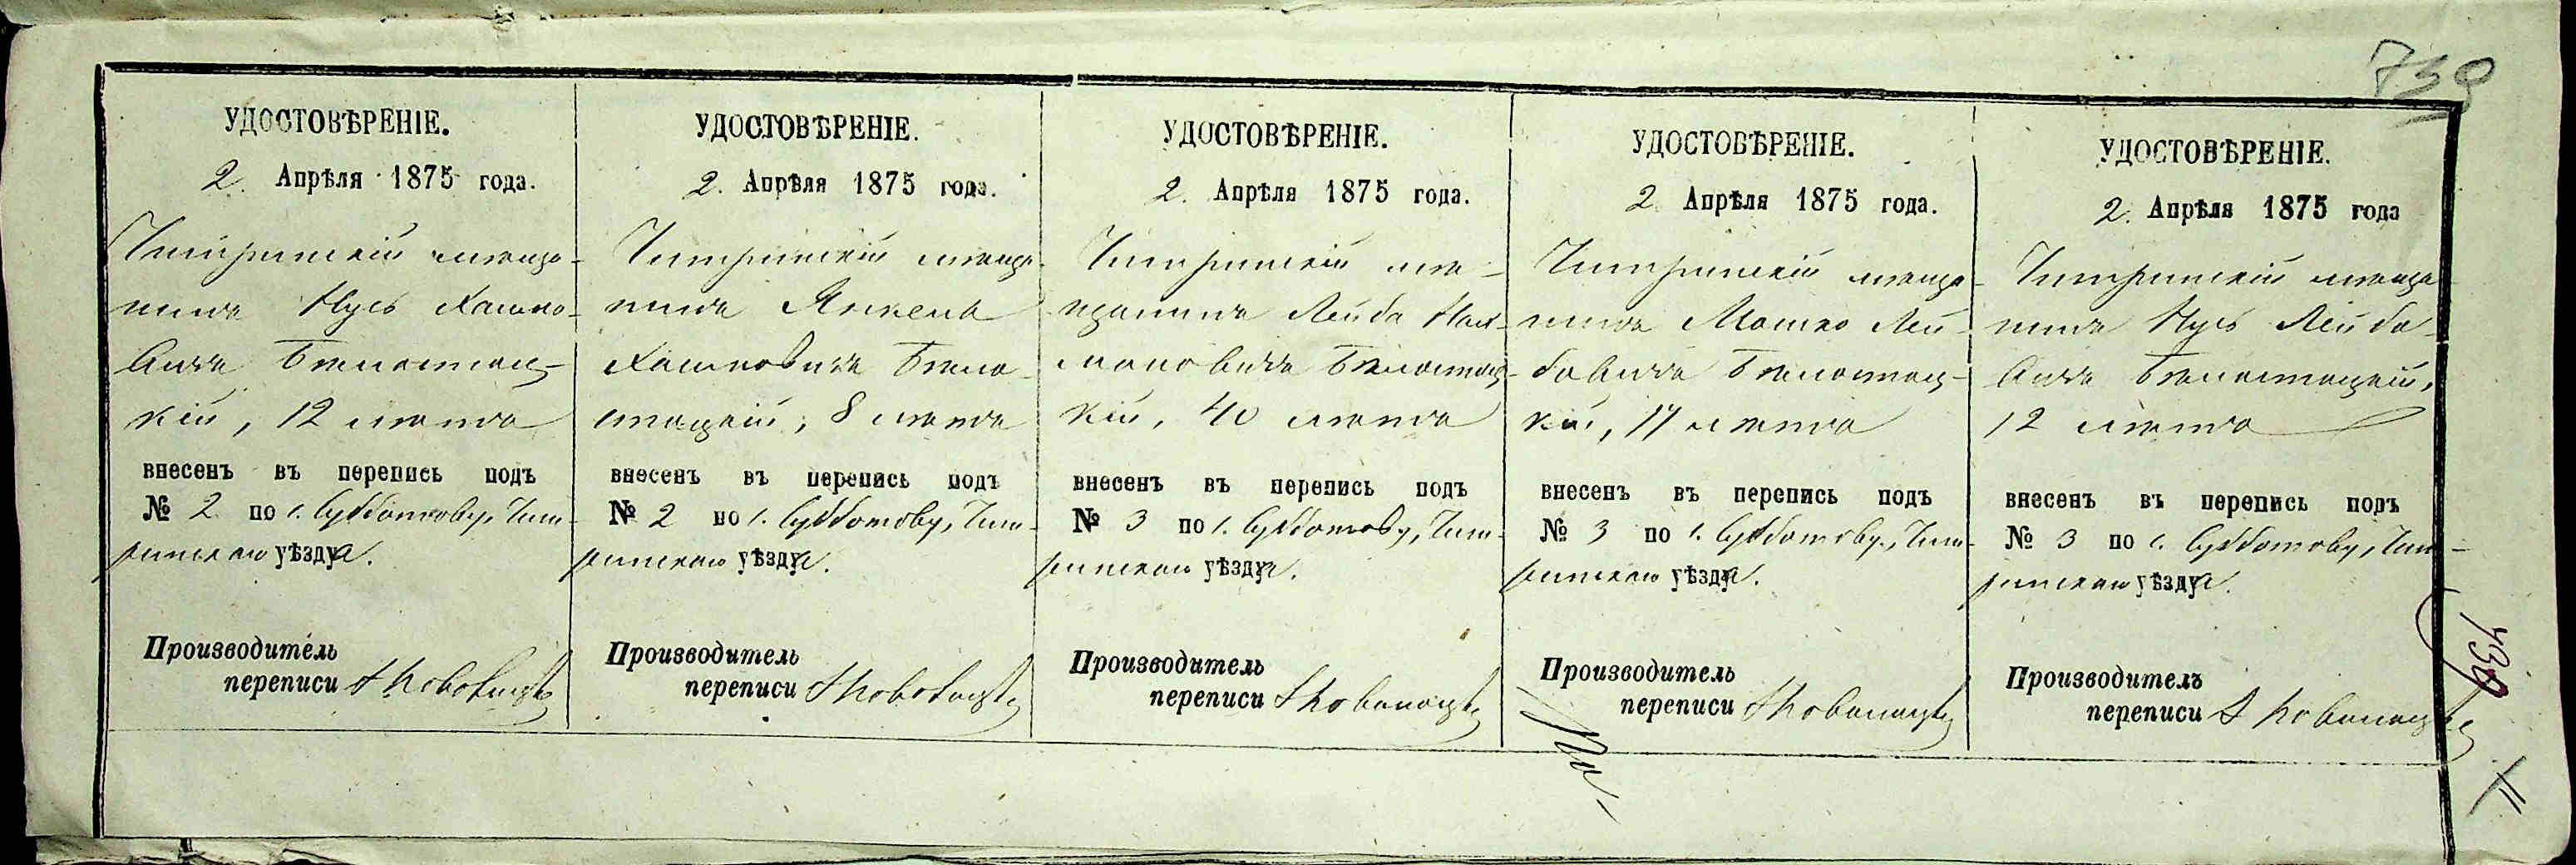 739
УДОСТОВѢРЕНІЕ.
2. Апрѣля 1875 года.
Чигиринскій мѣща-
нинъ Нусь Хаимо-
вичъ Бѣлостоц-
кій, 12 лѣтъ
внесенъ въ перепись подъ
№ 2 по с. Субботову, Чиги-
ринскаго уѣзда.
Производитель
переписи
УДОСТОВѢРЕНІЕ.
2. Апрѣля 1875 года.
Чигиринскій мѣща-
нинъ Янкель
Хаимовичъ Бѣло-
стоцкій, 8 лѣтъ
внесенъ въ перепись подъ
№ 2 по с. Субботову, Чиги-
ринскаго уѣзда.
Производитель
переписи
УДОСТОВѢРЕНІЕ.
2. Апрѣля 1875 года.
Чигиринскій мѣ-
щанинъ Лейба Нах-
мановичъ Бѣлостоц-
кій, 40 лѣтъ
внесенъ въ перепись подъ
№ 3 по с. Субботову, Чиги-
ринскаго уѣзда.
Производитель
переписи
УДОСТОВѢРЕНІЕ.
2 Апрѣля 1875 года.
Чигиринскій мѣща-
нинъ Мошко Лей-
бовичъ Бѣлостоц-
кій, 17 лѣтъ
внесенъ въ перепись подъ
№ 3 по с. Субботову, Чиги-
ринскаго уѣзда.
Производитель
переписи
УДОСТОВѢРЕНІЕ.
2. Апрѣля 1875 года
Чигиринскій мѣща-
нинъ Нусь Лейбо-
вичъ Бѣлостоцкій,
12 лѣтъ
внесенъ въ перепись подъ
№ 3 по с. Субботову, Чиги-
ринскаго уѣзда.
Производитель
переписи
739